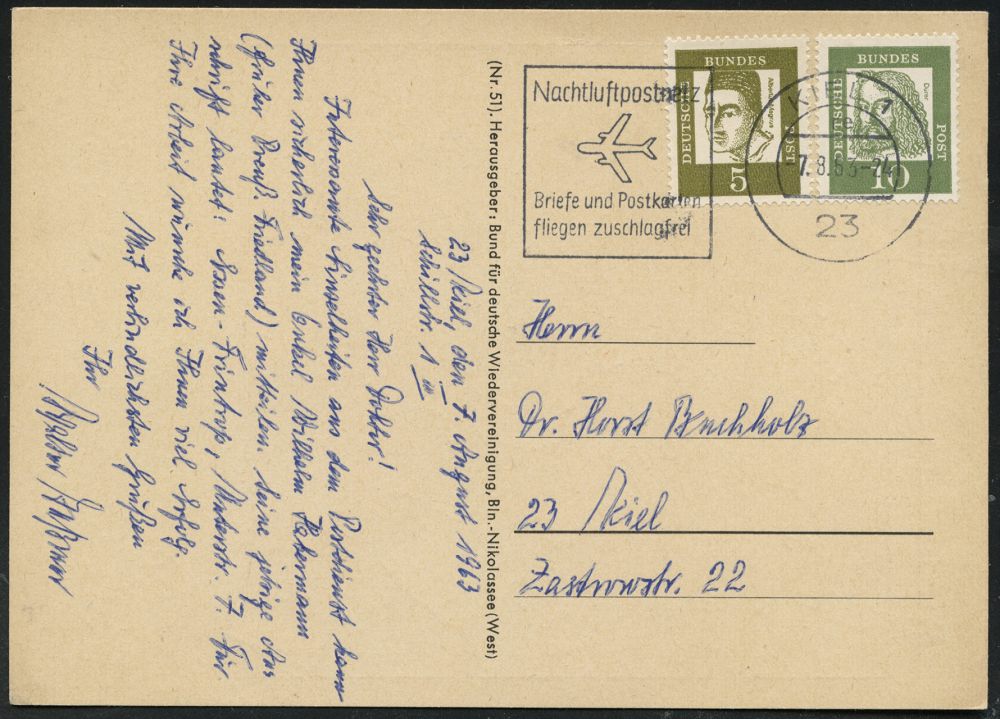 23 Kiel, den 7. August 1963
Schillstr. 1 III
Sehr geehrter Herr Doktor!
Interessante Einzelheiten aus dem Postdienst kann
Ihnen sicherlich mein Onkel Wilhelm Habermann
(früher Preuß. Friedland) mitteilen. Seine jetzige An-
schrift lautet: Essen-Frintrop, Unterstr. 7. Für
Ihre Arbeit wünsche ich Ihnen viel Erfolg.
Mit verbindlichsten Grüßen
Ihr
Walter
(Nr. 51). Herausgeber: Bund für deutsche Wiedervereinigung, Bln.-Nikolassee (West)
Nachtluftpostnetz
Briefe und Postkarten
fliegen zuschlagfrei
DEUTSCHE BUNDES POST
5
DEUTSCHE BUNDES POST
Dürer
10
KIEL 1
7.8.63-24
23
Herrn
Dr. Horst Buchholz
23 Kiel
Zastrowstr. 22